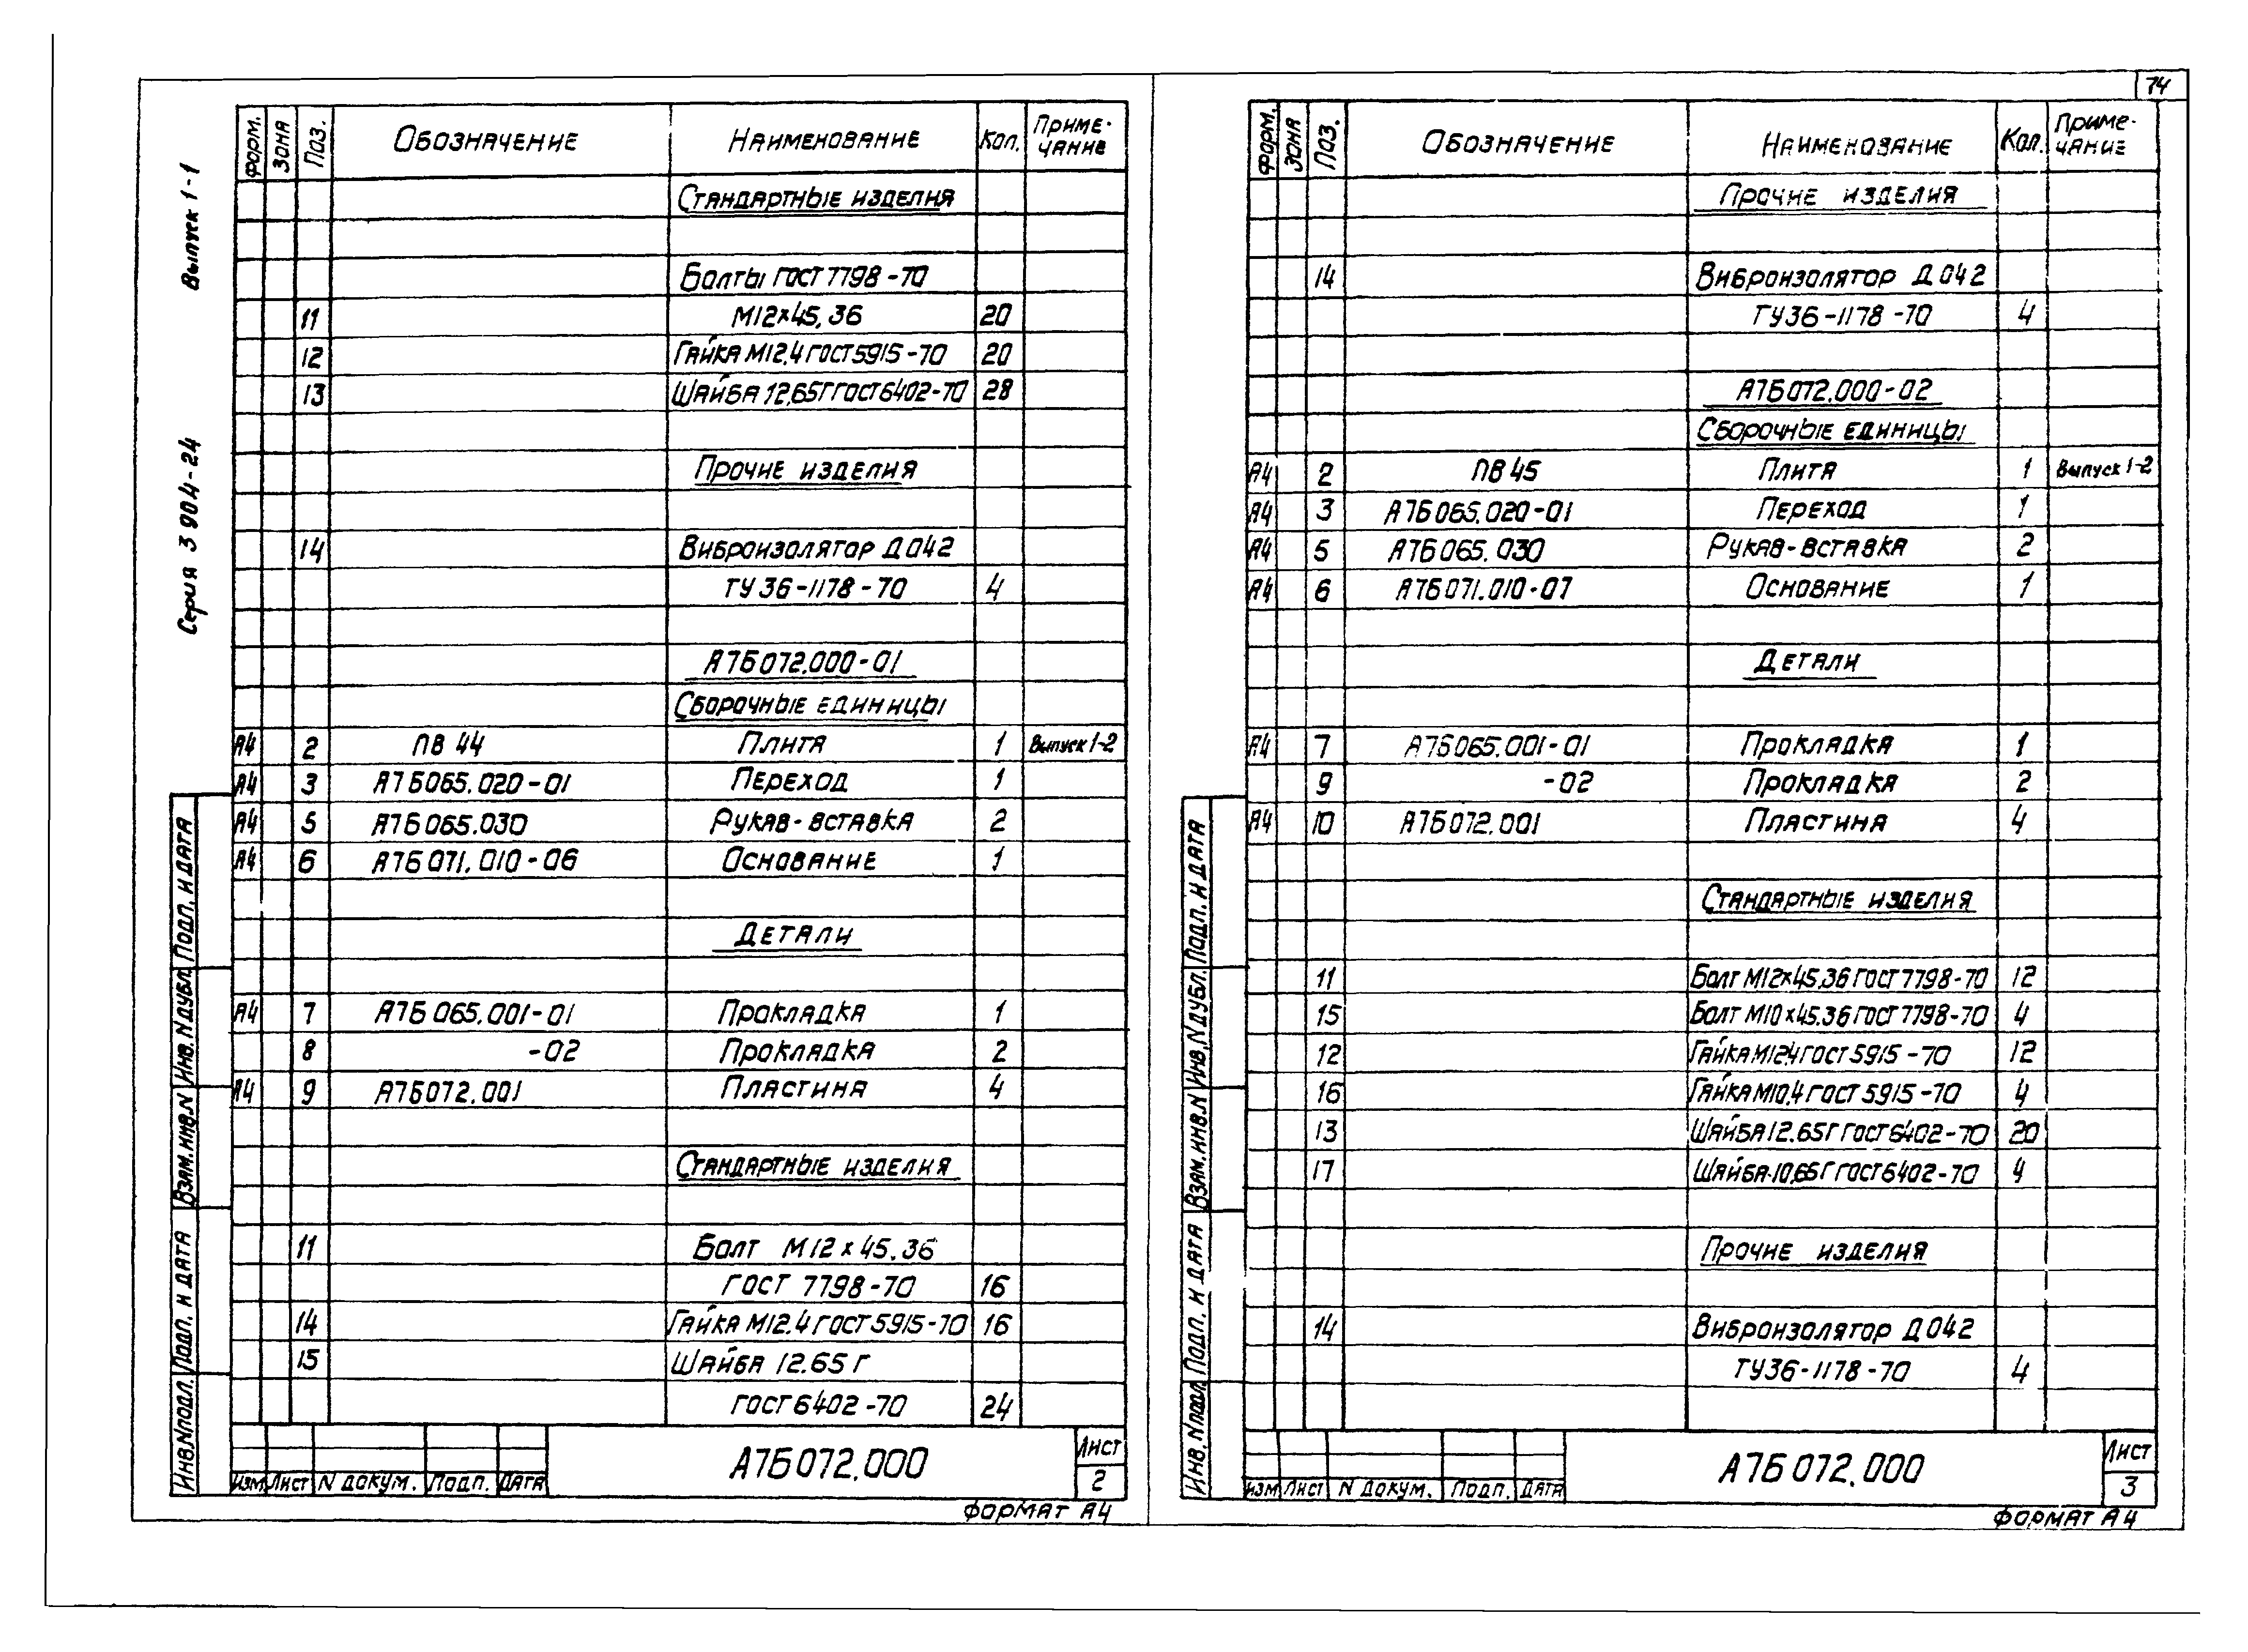 74
Серия 3 904-24 Выпуск 1-1
Форм. Зона Поз. Обозначение Наименование Кол. Приме-чание
Стандартные изделия
Болты ГОСТ 7798-70
11 М12×45.36 20
12 Гайка М12.4 ГОСТ 5915-70 20
13 Шайба 12.65Г ГОСТ 6402-70 28
Прочие изделия
14 Виброизолятор Д042
ТУ 36-1178-70 4
А7Б072.000-01
Сборочные единицы
А4 2 ПВ 44 Плита 1 Выпуск 1-2
А4 3 А7Б065.020-01 Переход 1
А4 5 А7Б065.030 Рукав-вставка 2
А4 6 А7Б071.010-06 Основание 1
Детали
А4 7 А7Б065.001-01 Прокладка 1
8 -02 Прокладка 2
А4 9 А7Б072.001 Пластина 4
Стандартные изделия
11 Болт М12×45.36
ГОСТ 7798-70 16
14 Гайка М12.4 ГОСТ 5915-70 16
15 Шайба 12.65Г
ГОСТ 6402-70 24
Инв.N подл. Подп. и дата Взам.инв.N Инв.N дубл. Подп. и дата
Изм Лист N докум. Подп. Дата
А7Б072.000
Лист
2
Формат А4
Форм. Зона Поз. Обозначение Наименование Кол. Приме-чание
Прочие изделия
14 Виброизолятор Д042
ТУ36-1178-70 4
А7Б072.000-02
Сборочные единицы
А4 2 ПВ 45 Плита 1 Выпуск 1-2
А4 3 А7Б065.020-01 Переход 1
А4 5 А7Б065.030 Рукав-вставка 2
А4 6 А7Б071.010-07 Основание 1
Детали
А4 7 А7Б065.001-01 Прокладка 1
9 -02 Прокладка 2
А4 10 А7Б072.001 Пластина 4
Стандартные изделия
11 Болт М12×45.36 ГОСТ 7798-70 12
15 Болт М10×45.36 ГОСТ 7798-70 4
12 Гайка М12.4 ГОСТ 5915-70 12
16 Гайка М10.4 ГОСТ 5915-70 4
13 Шайба 12.65Г ГОСТ 6402-70 20
17 Шайба 10.65Г ГОСТ 6402-70 4
Прочие изделия
14 Виброизолятор Д042
ТУ36-1178-70 4
Инв.N подл. Подп. и дата Взам.инв.N Инв.N дубл. Подп. и дата
Изм Лист N докум. Подп. Дата
А7Б072.000
Лист
3
Формат А4